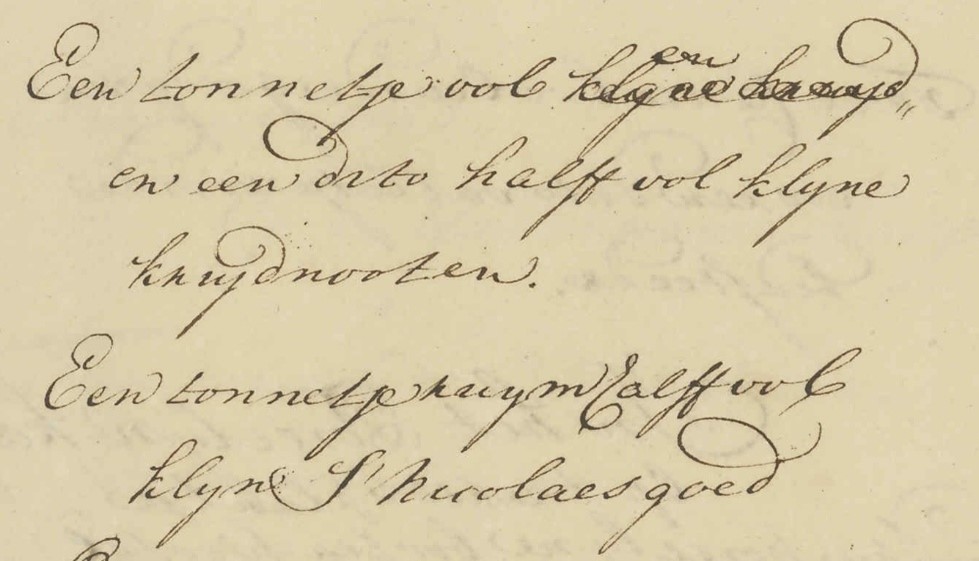 Een tonnetje vol klyne kruyd„
en
en een dito halff vol klyne
kruydnooten.
Een tonnetje ruym halff vol
klyne St Nicolaes goed